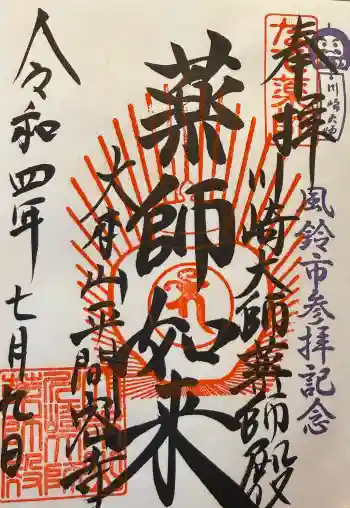 奉拝
川崎大師
風鈴市参拝記念
川崎大師薬師殿
薬師如来
大本山平間寺
令和四年七月九日